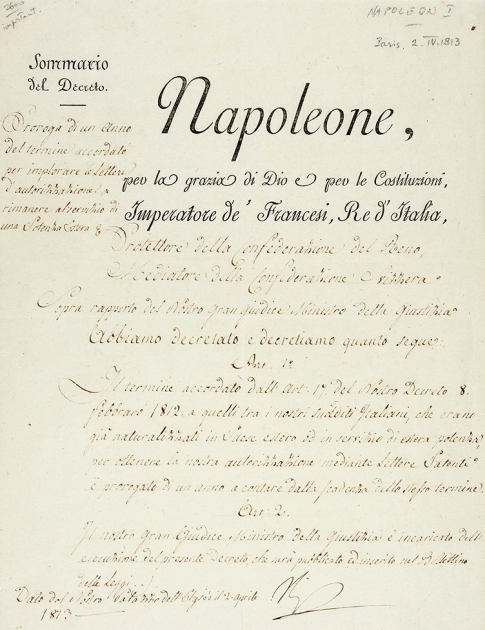 NAPOLEON I
Paris, 2. IV. 1813
Sommario
del Decreto.
Proroga di un anno
del termine accordato
per implorare le Lettere
d'autorizzazione a
rimanere al servizio di
una Potenza Estera
Napoleone,
per la grazia di Dio e per le Costituzioni,
Imperatore de' Francesi, Re d'Italia,
Protettore della Confederazione del Reno,
Mediatore della Confederazione Svizzera
Sopra rapporto del Nostro Gran Giudice Ministro della Giustizia
Abbiamo decretato e decretiamo quanto segue:
Art. 1º
Il termine accordato dall'Art. 17 del Nostro Decreto 8.
febbraro 1812. a quelli tra i nostri sudditi Italiani, che erano
già naturalizzati in Paese estero od in servizio di estera potenza,
per ottenere la nostra autorizzazione mediante Lettere Patenti
è prorogato di un anno a contare dalla scadenza dello stesso termine.
Art. 2.
Il nostro Gran Giudice Ministro della Giustizia è incaricato dell'
esecuzione del presente Decreto, che sarà pubblicato ed inserito nel Bollettino
delle Leggi.
Dato dal Nostro Palazzo dell'Elyseo il 2. Aprile
1813